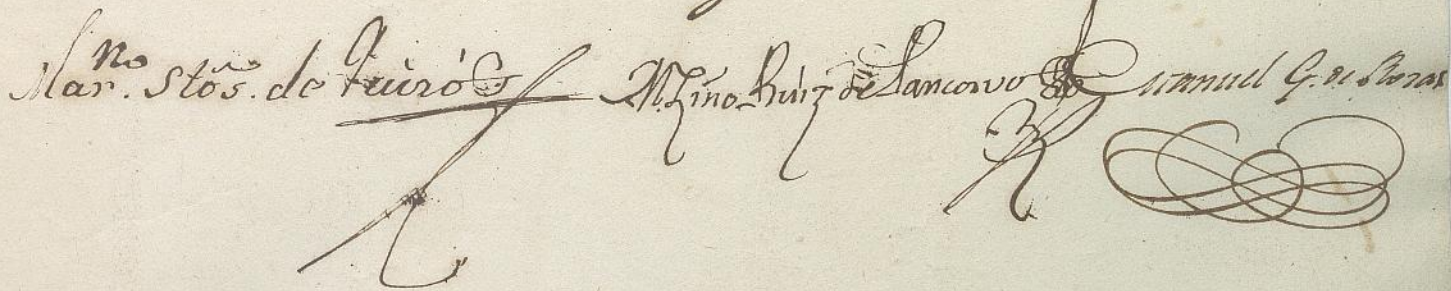 Marno. Stõs. de Quirós M. Zino Ruiz de Pancorvo Manuel G. de